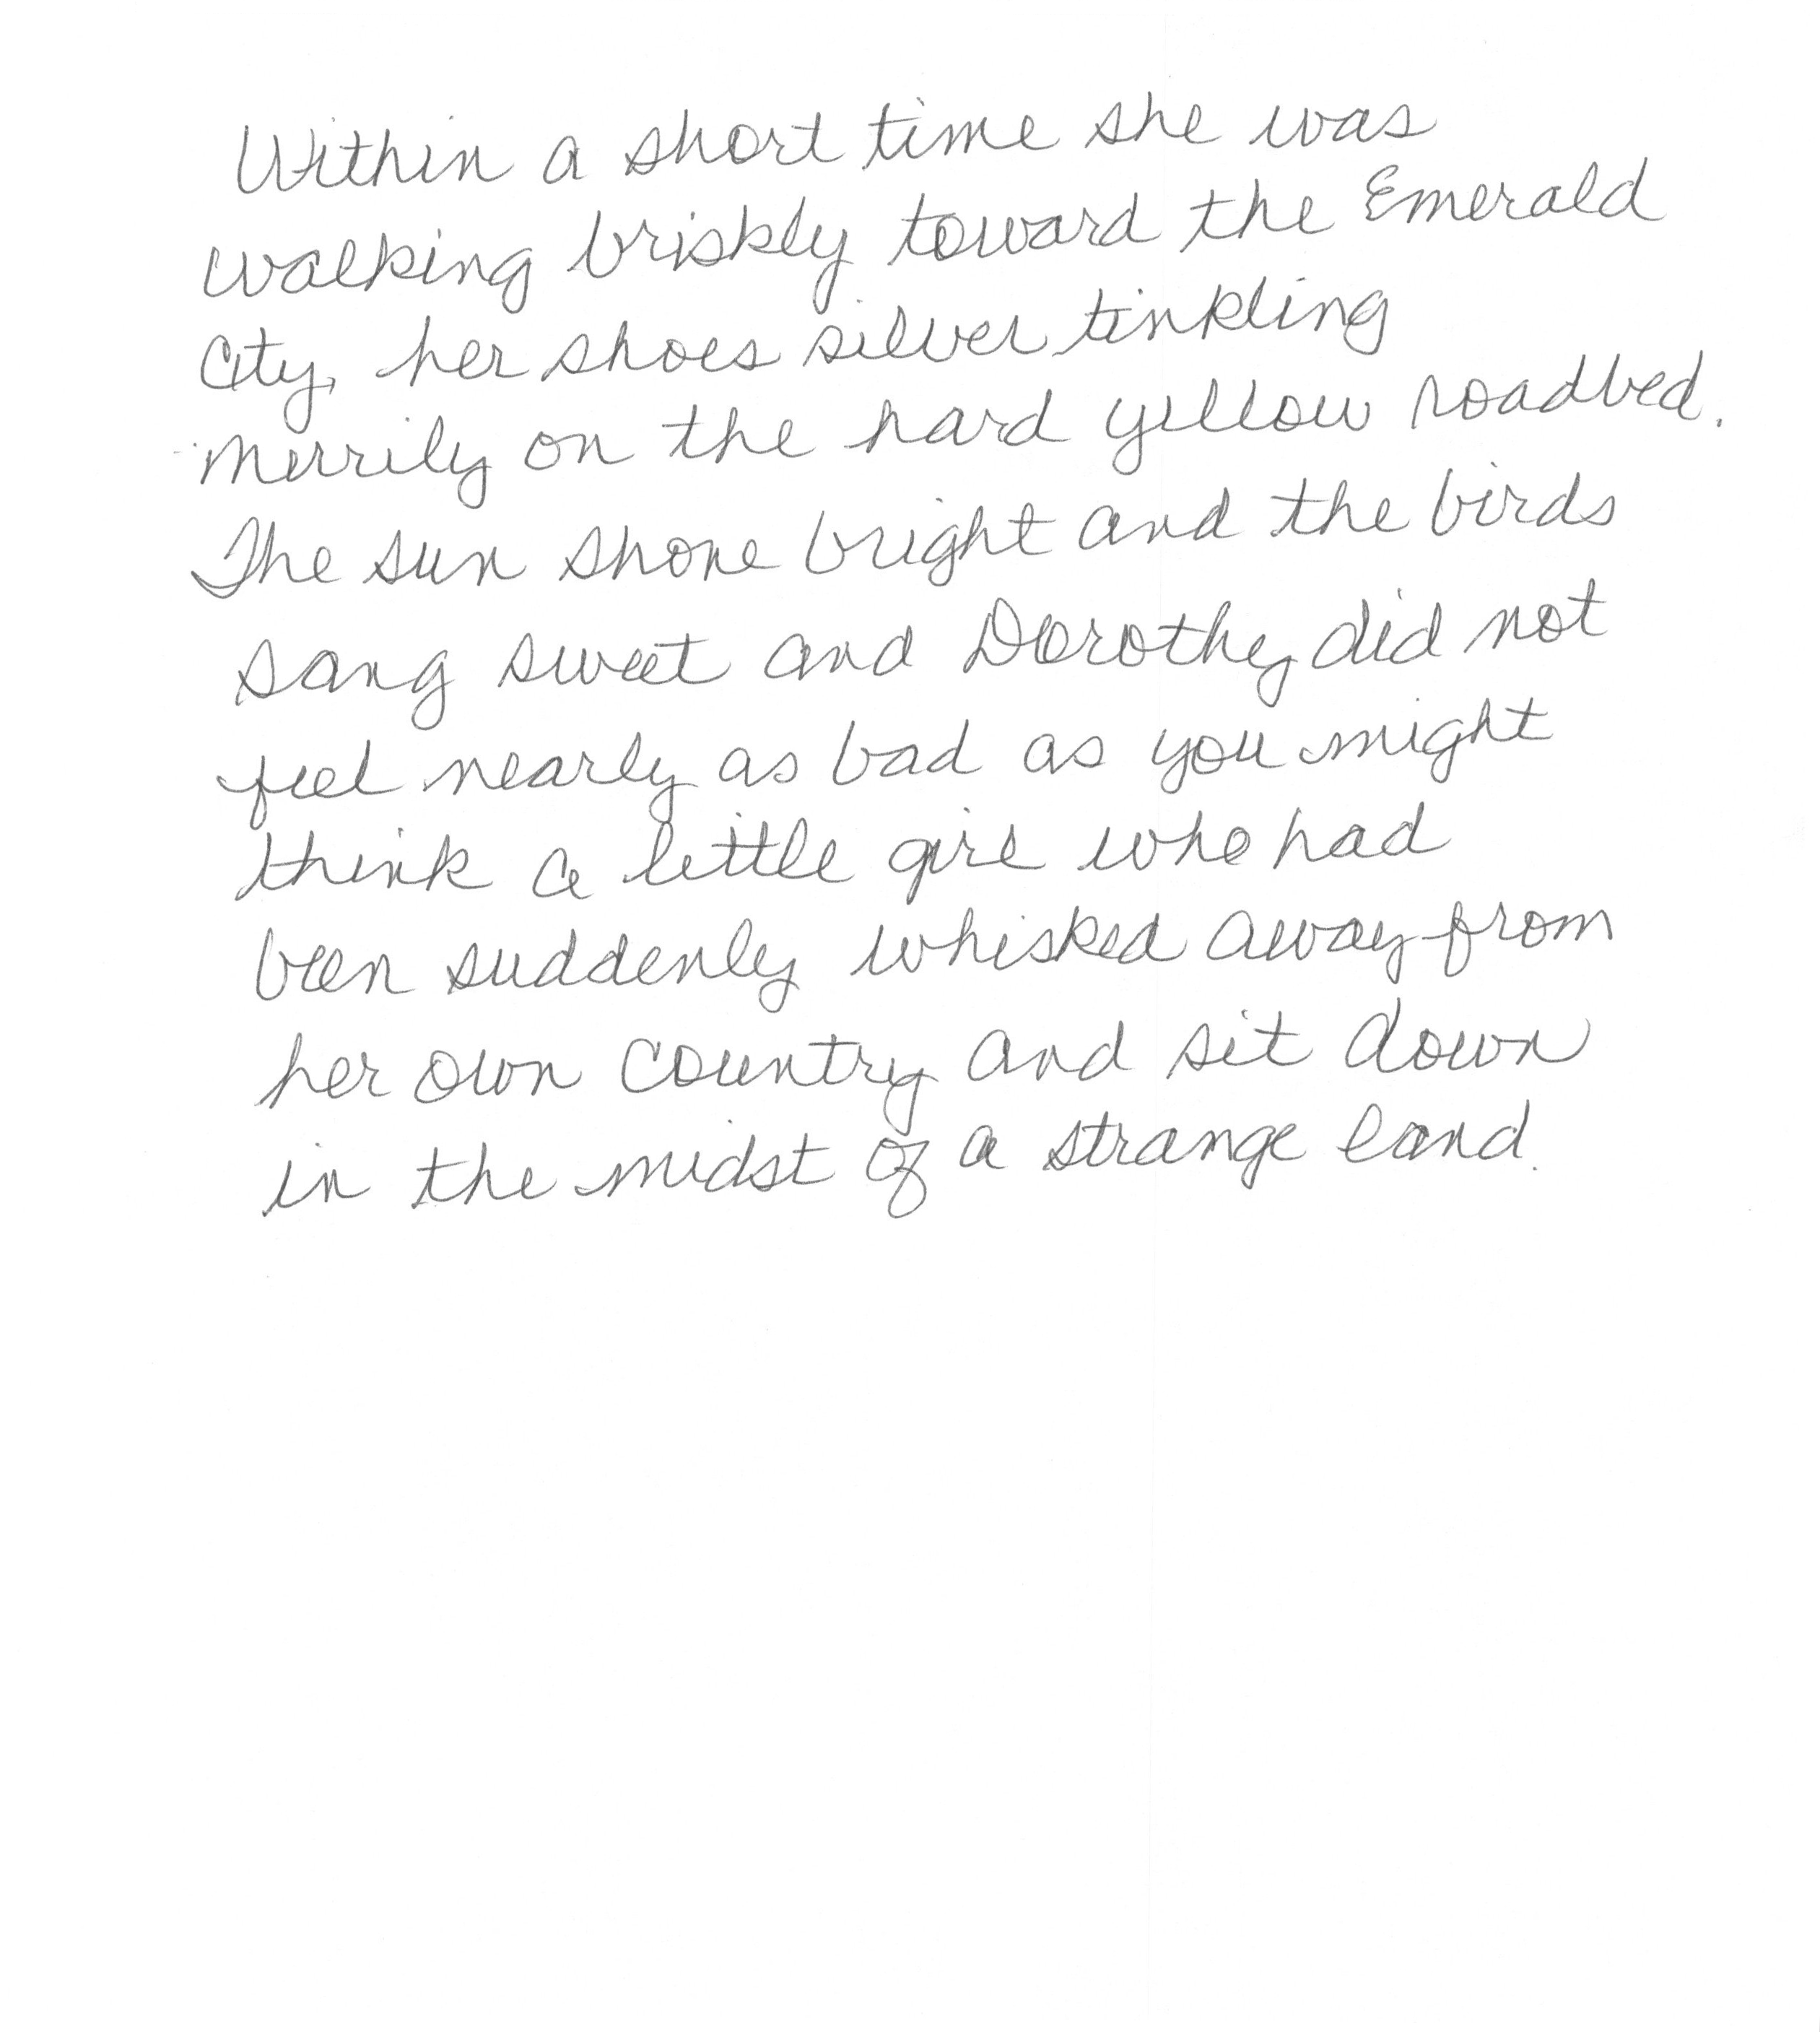 Within a short time she was
walking briskly toward the Emerald
City, her shoes silver tinkling
merrily on the hard yellow roadbed.
The sun shone bright and the birds
sang sweet and Dorothy did not
feel nearly as bad as you might
think a little girl who had
been suddenly whisked away from
her own country and sit down
in the midst of a strange land.